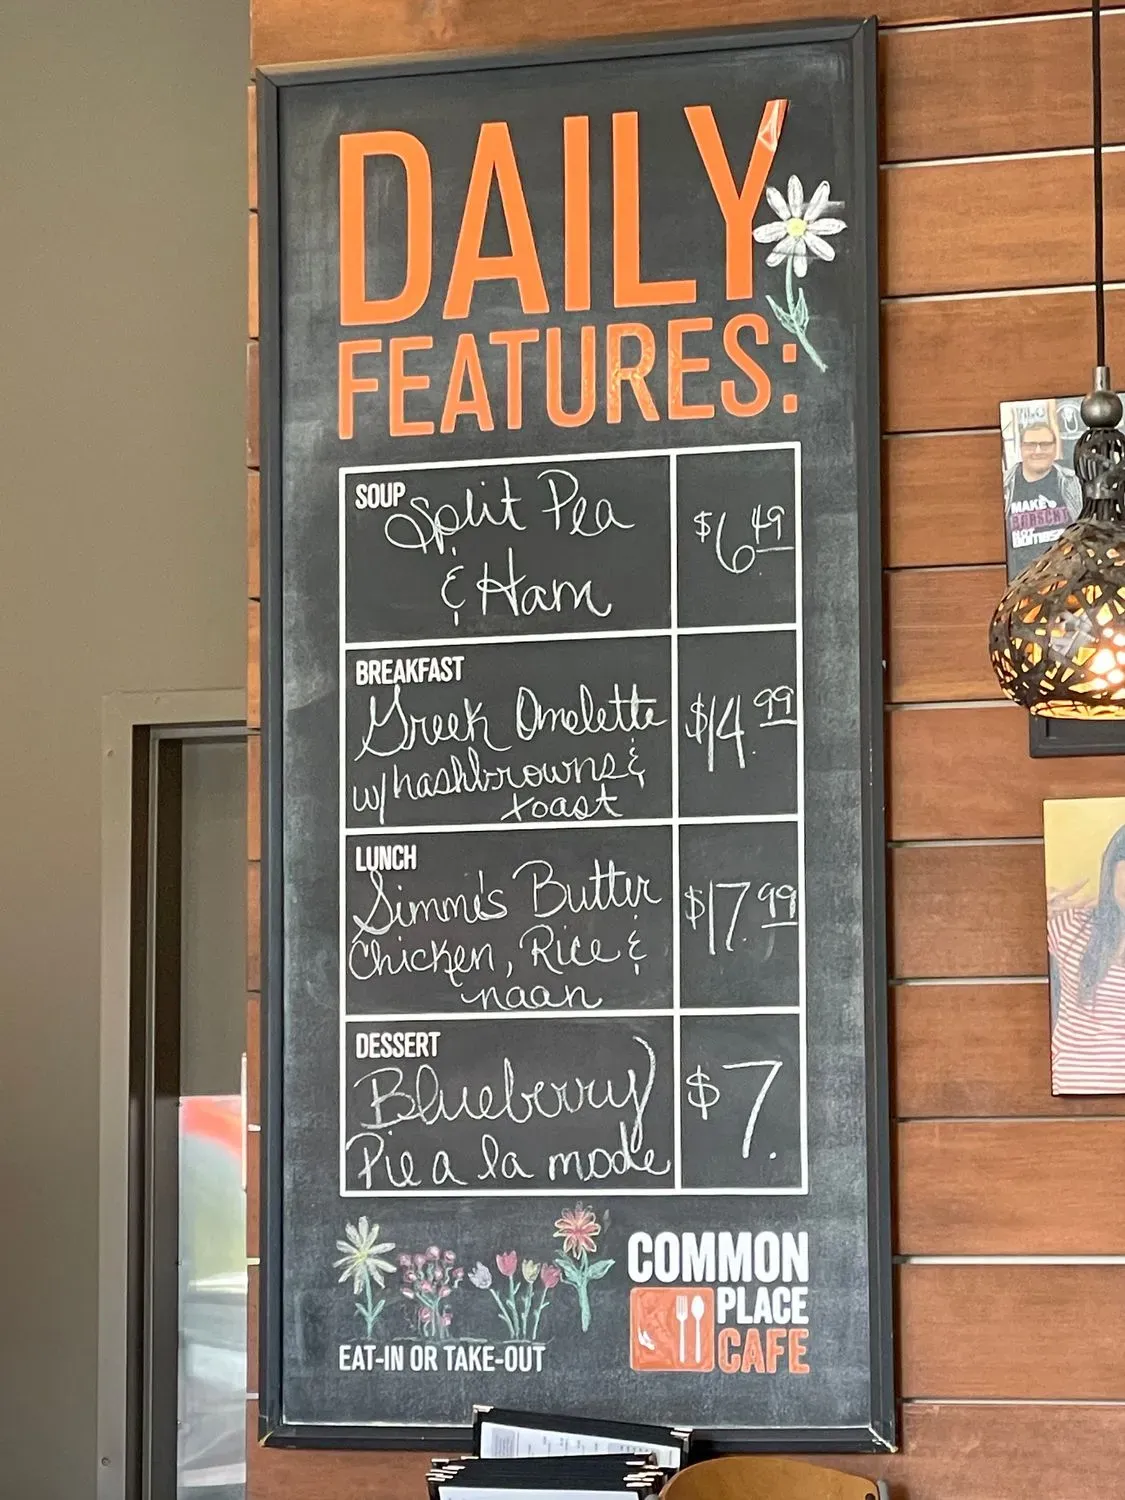 DAILY
FEATURES:
SOUP
Split Pea
& Ham
$6.49
BREAKFAST
Greek Omelette
w/ hashbrowns &
toast
$14.99
LUNCH
Simmi's Butter
Chicken, Rice &
naan
$17.99
DESSERT
Blueberry
Pie a la mode
$7.
EAT-IN OR TAKE-OUT
COMMON
PLACE
CAFE
MAKE
BORSCHT
NOT